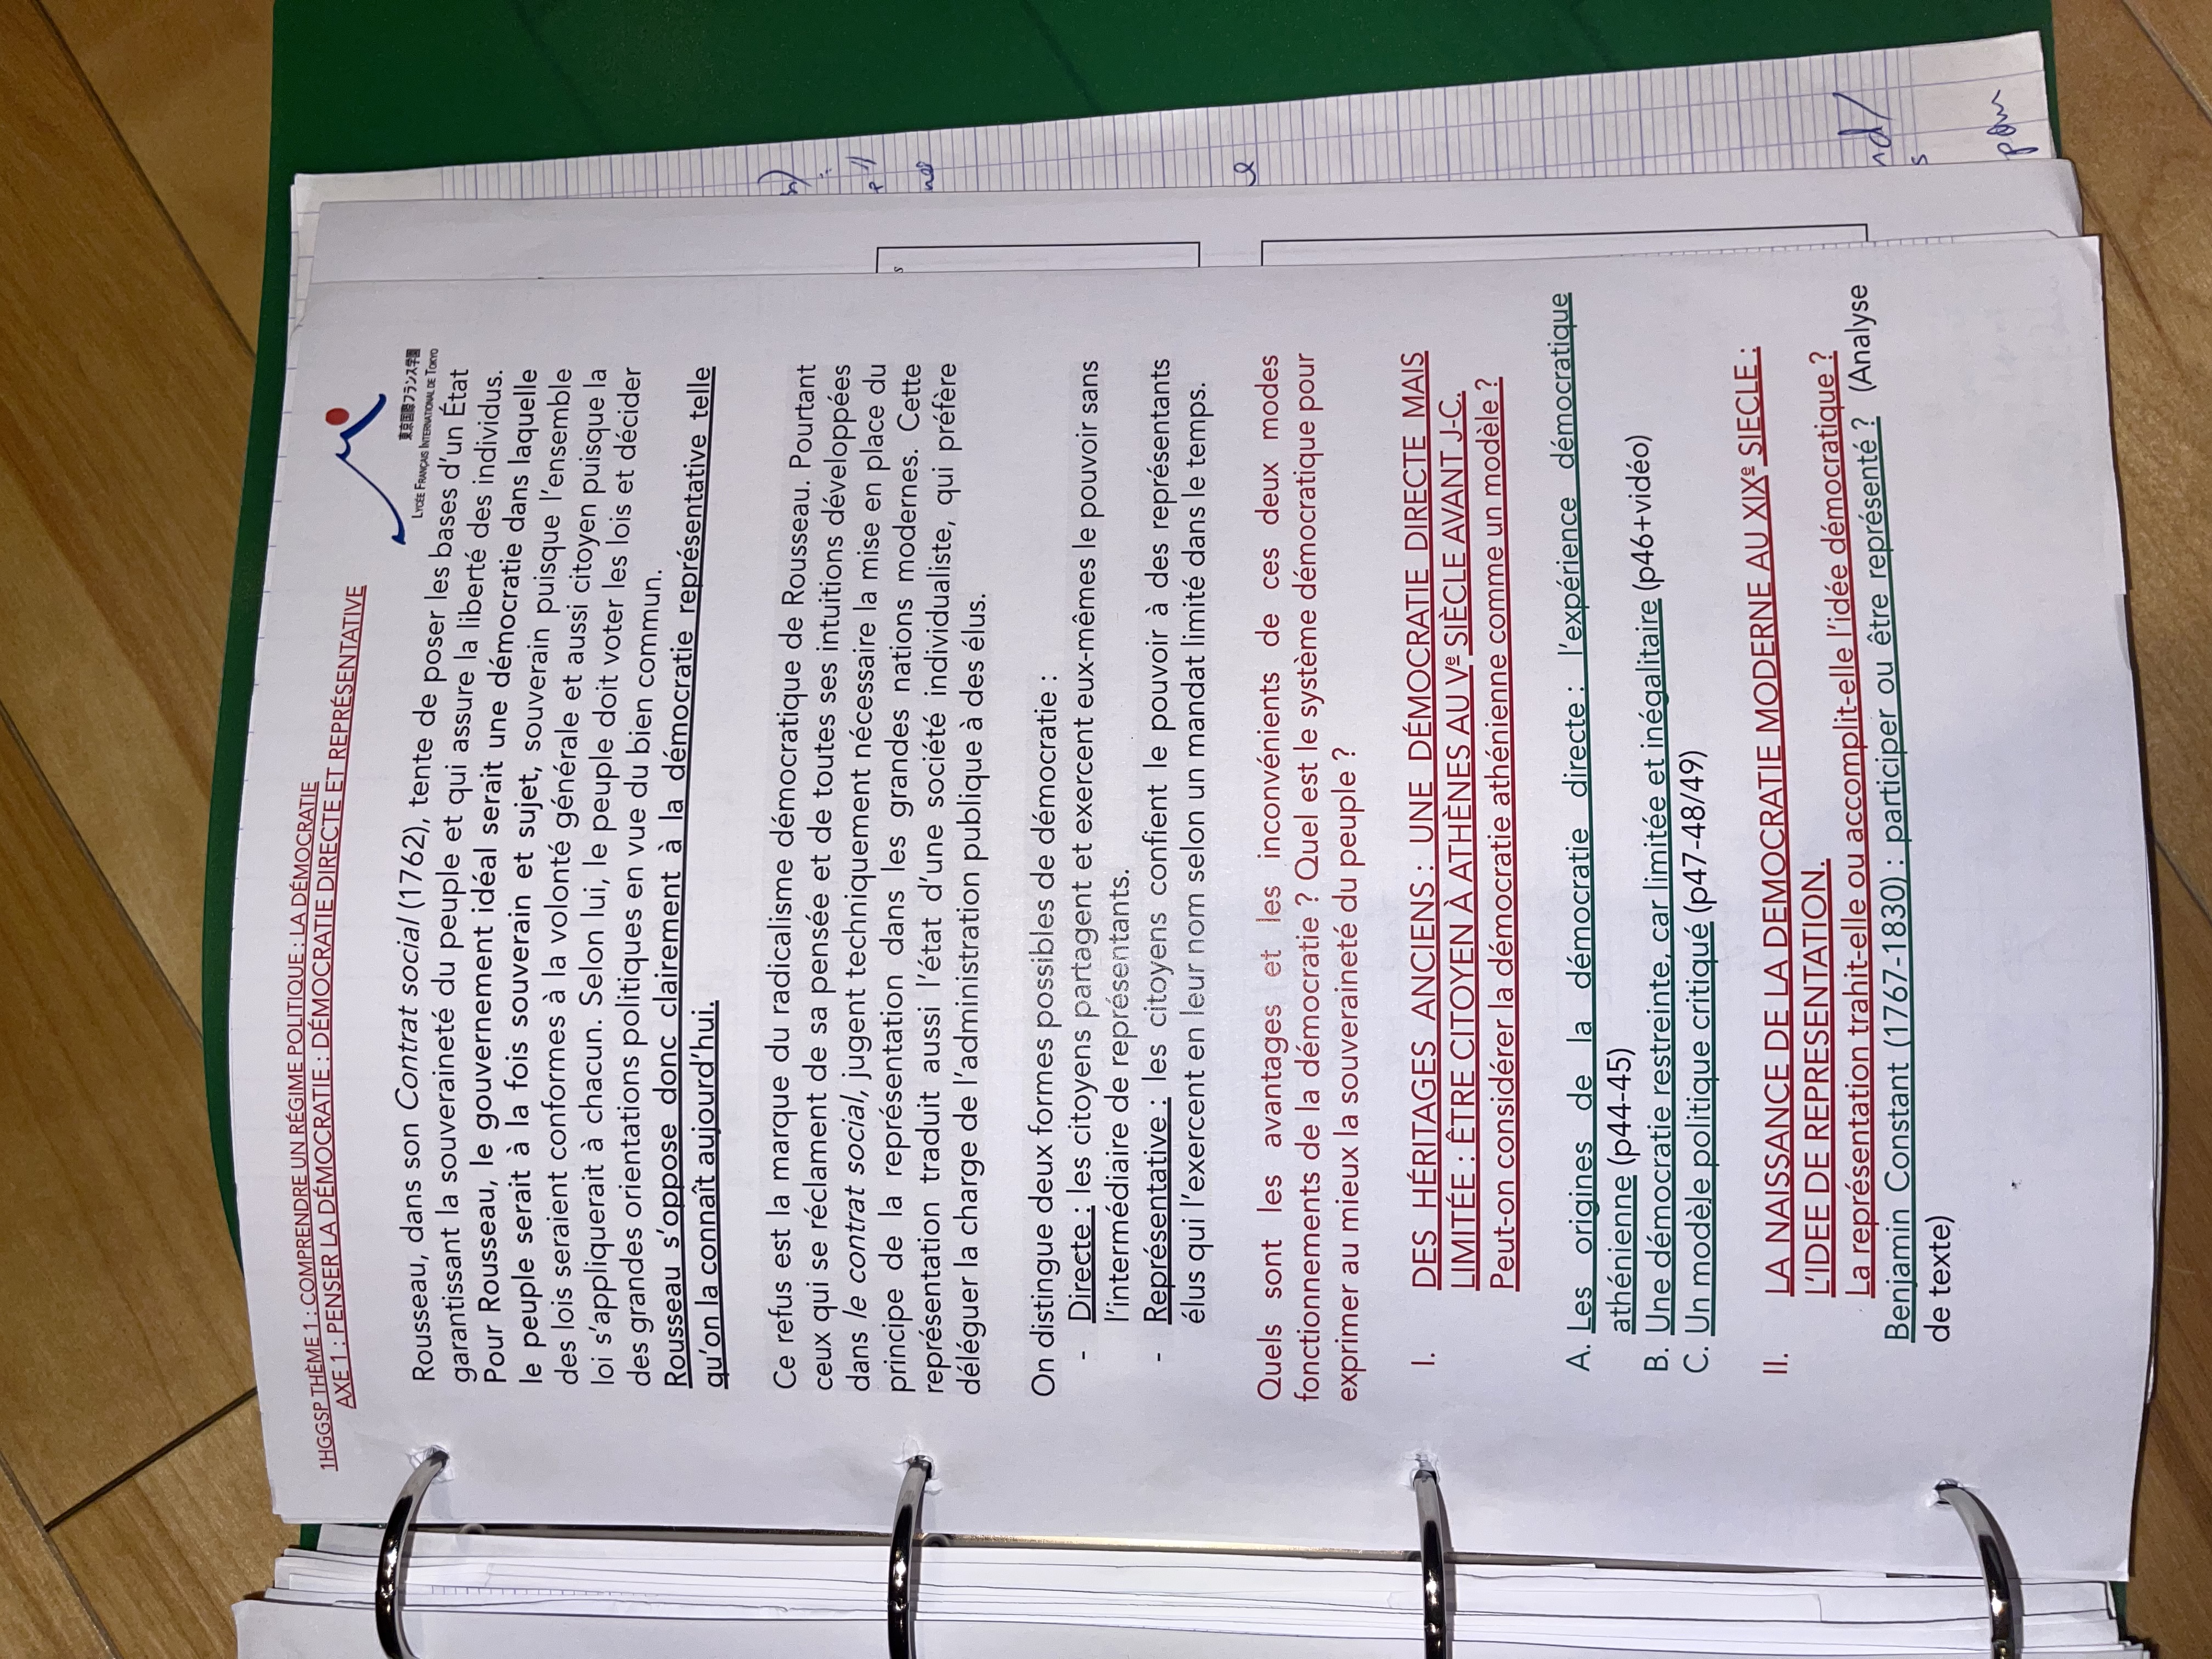 1HGGSP THÈME 1 : COMPRENDRE UN RÉGIME POLITIQUE : LA DÉMOCRATIE
AXE 1 : PENSER LA DÉMOCRATIE : DÉMOCRATIE DIRECTE ET REPRÉSENTATIVE
東京国際フランス学園
LYCÉE FRANÇAIS INTERNATIONAL DE TOKYO
Rousseau, dans son Contrat social (1762), tente de poser les bases d'un État
garantissant la souveraineté du peuple et qui assure la liberté des individus.
Pour Rousseau, le gouvernement idéal serait une démocratie dans laquelle
le peuple serait à la fois souverain et sujet, souverain puisque l'ensemble
des lois seraient conformes à la volonté générale et aussi citoyen puisque la
loi s'appliquerait à chacun. Selon lui, le peuple doit voter les lois et décider
des grandes orientations politiques en vue du bien commun.
Rousseau s'oppose donc clairement à la démocratie représentative telle
qu'on la connaît aujourd'hui.
Ce refus est la marque du radicalisme démocratique de Rousseau. Pourtant
ceux qui se réclament de sa pensée et de toutes ses intuitions développées
dans le contrat social, jugent techniquement nécessaire la mise en place du
principe de la représentation dans les grandes nations modernes. Cette
représentation traduit aussi l'état d'une société individualiste, qui préfère
déléguer la charge de l'administration publique à des élus.
On distingue deux formes possibles de démocratie :
- Directe : les citoyens partagent et exercent eux-mêmes le pouvoir sans
l'intermédiaire de représentants.
- Représentative : les citoyens confient le pouvoir à des représentants
élus qui l'exercent en leur nom selon un mandat limité dans le temps.
Quels sont les avantages et les inconvénients de ces deux modes
fonctionnements de la démocratie ? Quel est le système démocratique pour
exprimer au mieux la souveraineté du peuple ?
I. DES HÉRITAGES ANCIENS : UNE DÉMOCRATIE DIRECTE MAIS
LIMITÉE : ÊTRE CITOYEN À ATHÈNES AU Ve SIÈCLE AVANT J-C.
Peut-on considérer la démocratie athénienne comme un modèle ?
A. Les origines de la démocratie directe : l'expérience démocratique
athénienne (p44-45)
B. Une démocratie restreinte, car limitée et inégalitaire (p46+vidéo)
C. Un modèle politique critiqué (p47-48/49)
II. LA NAISSANCE DE LA DEMOCRATIE MODERNE AU XIXe SIECLE :
L'IDEE DE REPRESENTATION.
La représentation trahit-elle ou accomplit-elle l'idée démocratique ?
Benjamin Constant (1767-1830) : participer ou être représenté ? (Analyse
de texte)